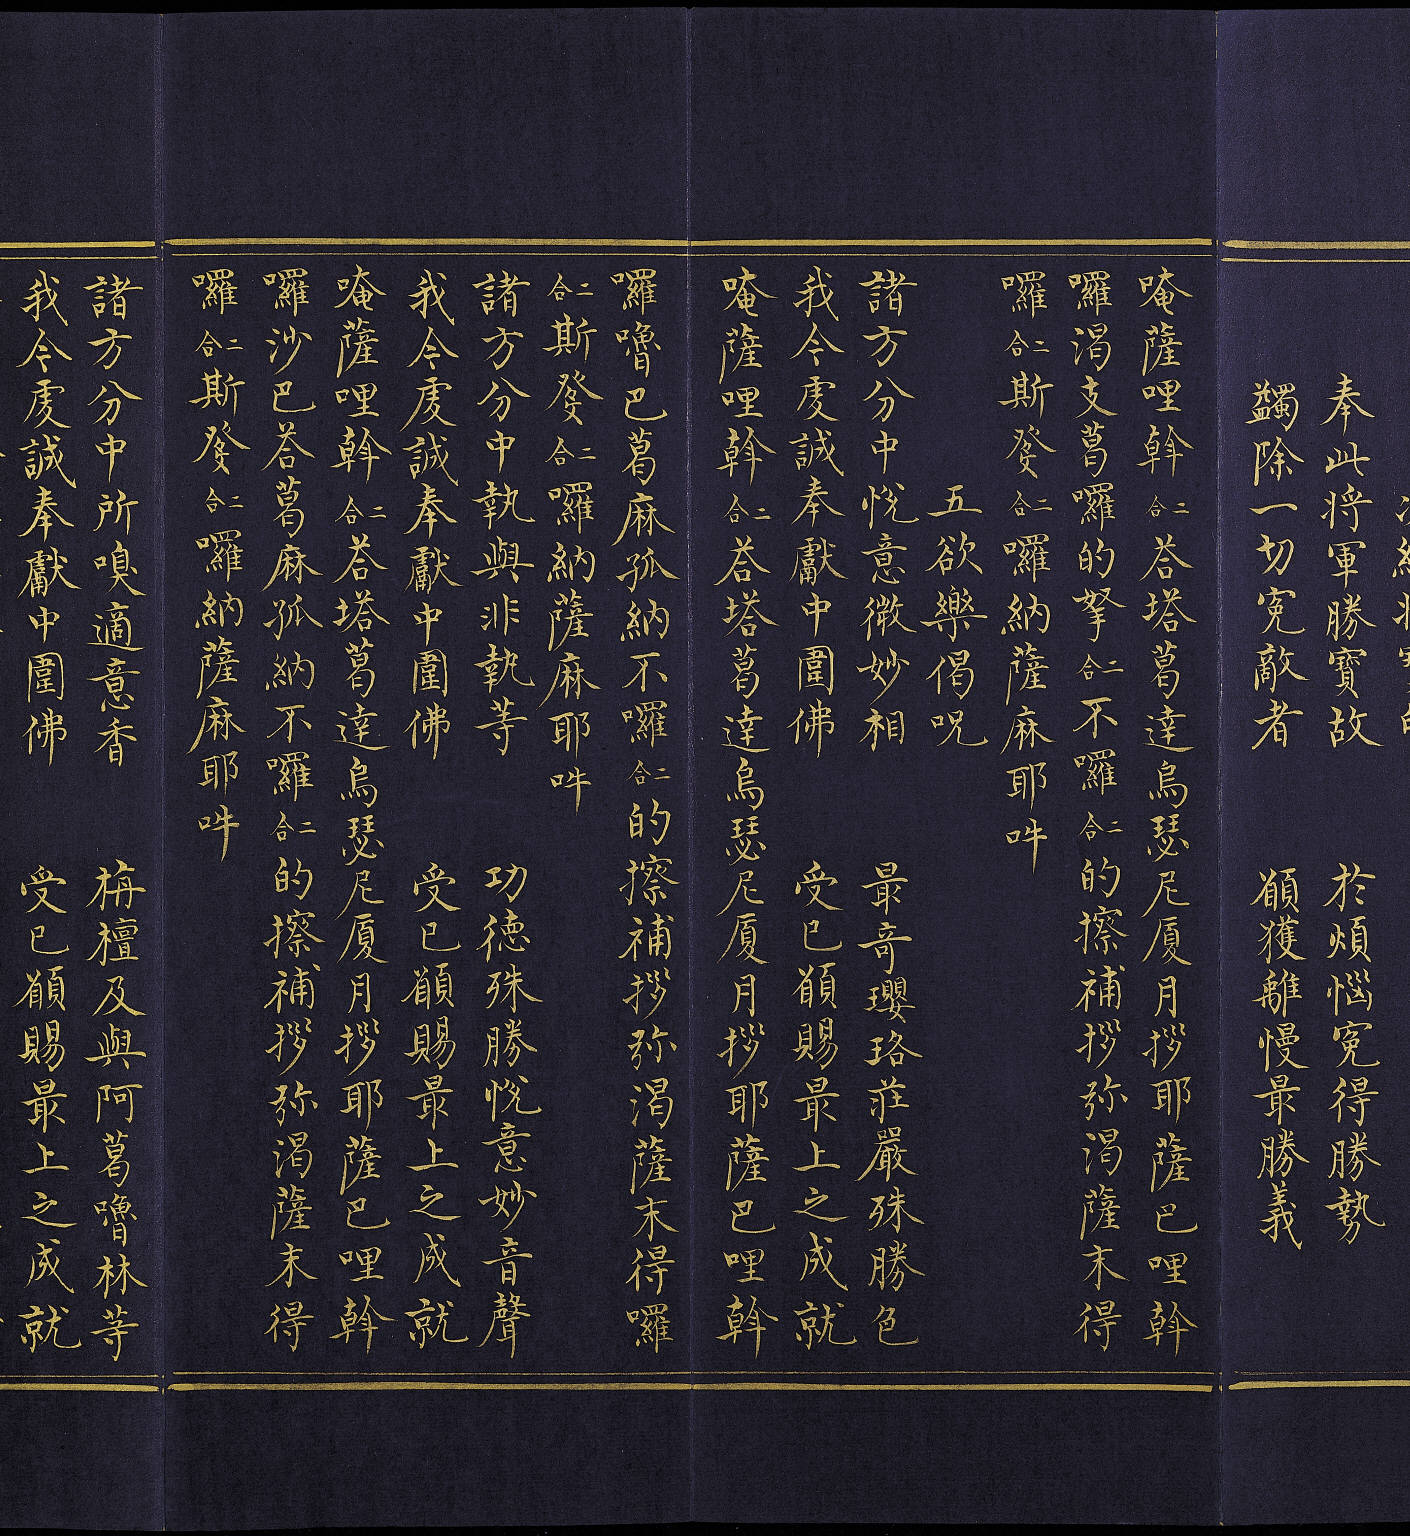 奉此將軍勝寶故　於煩惱寃得勝勢
蠲除一切寃敵者　願獲離慢最勝義
唵薩哩斡二合荅塔葛達烏瑟尼廈月拶耶薩巴哩斡
囉渴支葛囉的拏二合不囉二合的擦補拶弥渴薩末得
囉二合斯癹二合囉納薩麻耶吽
五欲樂偈呪
諸方分中悅意微妙相　最竒瓔珞莊嚴殊勝色
我今虔誠奉獻中圍佛　受已願賜最上之成就
唵薩哩斡二合荅塔葛達烏瑟尼廈月拶耶薩巴哩斡
囉嚕巴葛麻孤納不囉二合的擦補拶弥渴薩末得囉
二合斯癹二合囉納薩麻耶吽
諸方分中執與非執等　功德殊勝悅意妙音聲
我今虔誠奉獻中圍佛　受已願賜最上之成就
唵薩哩斡二合荅塔葛達烏瑟尼廈月拶耶薩巴哩斡
囉沙巴荅葛麻孤納不囉二合的擦補拶弥渴薩末得
囉二合斯癹二合囉納薩麻耶吽
諸方分中所嗅適意香　栴檀及與阿葛嚕林等
我今虔誠奉獻中圍佛　受已願賜最上之成就